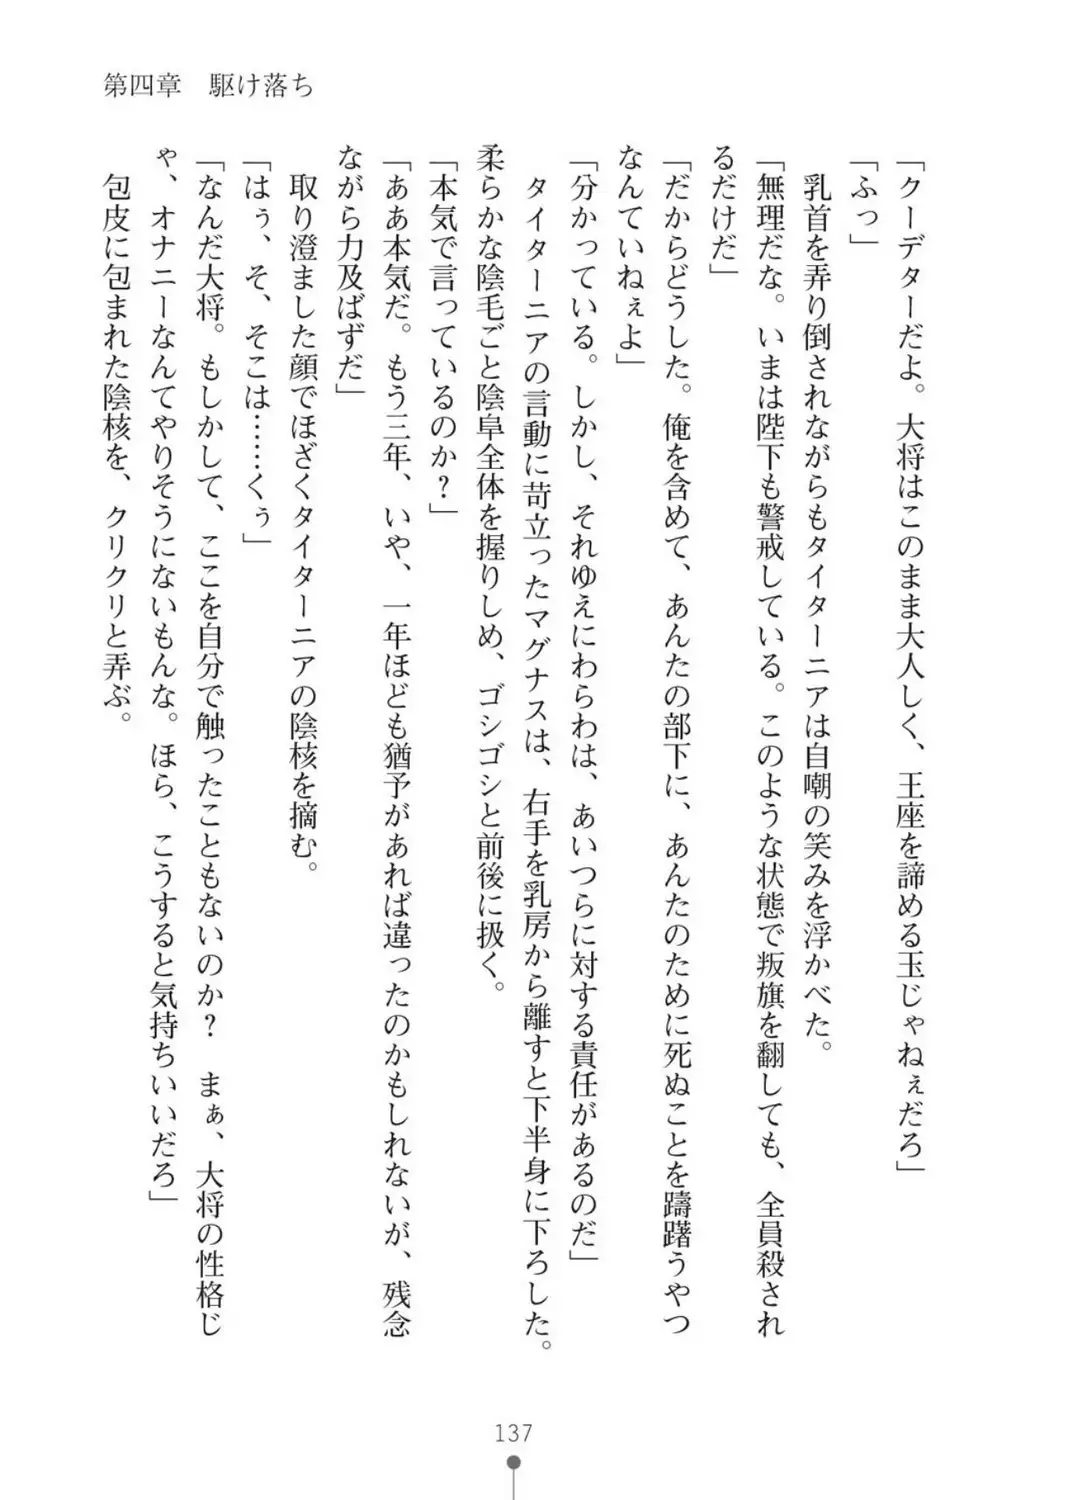 第四章　駆け落ち
「クーデターだよ。大将はこのまま大人しく、王座を諦める玉じゃねぇだろ」
「ふっ」
　乳首を弄り倒されながらもタイターニアは自嘲の笑みを浮かべた。
「無理だな。いまは陛下も警戒している。このような状態で叛旗を翻しても、全員殺され
るだけだ」
「だからどうした。俺を含めて、あんたの部下に、あんたのために死ぬことを躊躇うやつ
なんていねぇよ」
「分かっている。しかし、それゆえにわらわは、あいつらに対する責任があるのだ」
　タイターニアの言動に苛立ったマグナスは、右手を乳房から離すと下半身に下ろした。
柔らかな陰毛ごと陰阜全体を握りしめ、ゴシゴシと前後に扱く。
「本気で言っているのか？」
「ああ本気だ。もう三年、いや、一年ほども猶予があれば違ったのかもしれないが、残念
ながら力及ばずだ」
　取り澄ました顔でほざくタイターニアの陰核を摘む。
「はぅ、そ、そこは……くぅ」
「なんだ大将。もしかして、ここを自分で触ったこともないのか？　まぁ、大将の性格じ
ゃ、オナニーなんてやりそうにないもんな。ほら、こうすると気持ちいいだろ」
　包皮に包まれた陰核を、クリクリと弄ぶ。
137